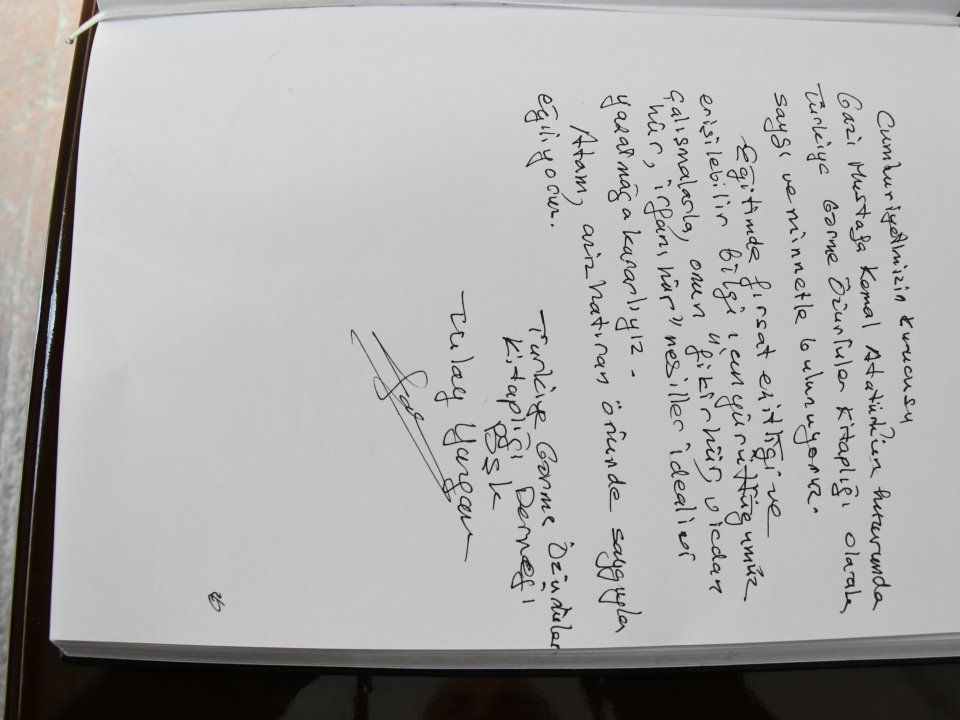 Cumhuriyetimizin kurucusu
Gazi Mustafa Kemal Atatürk'ün huzurunda
Türkiye Görme Özürlüler Kitaplığı olarak,
saygı ve minnetle bulunuyoruz.
Eğitimde fırsat eşitliği ve
erişilebilir bilgi için yürüttüğümüz
çalışmalarla, onun "fikri hür, vicdanı
hür, irfanı hür" nesiller idealini
yaşatmağa kararlıyız.
Atam, aziz hatıran önünde saygıyla
eğiliyorum.
Türkiye Görme Özürlüler
Kitaplığı Derneği
Bşk
Tülay Yazgan